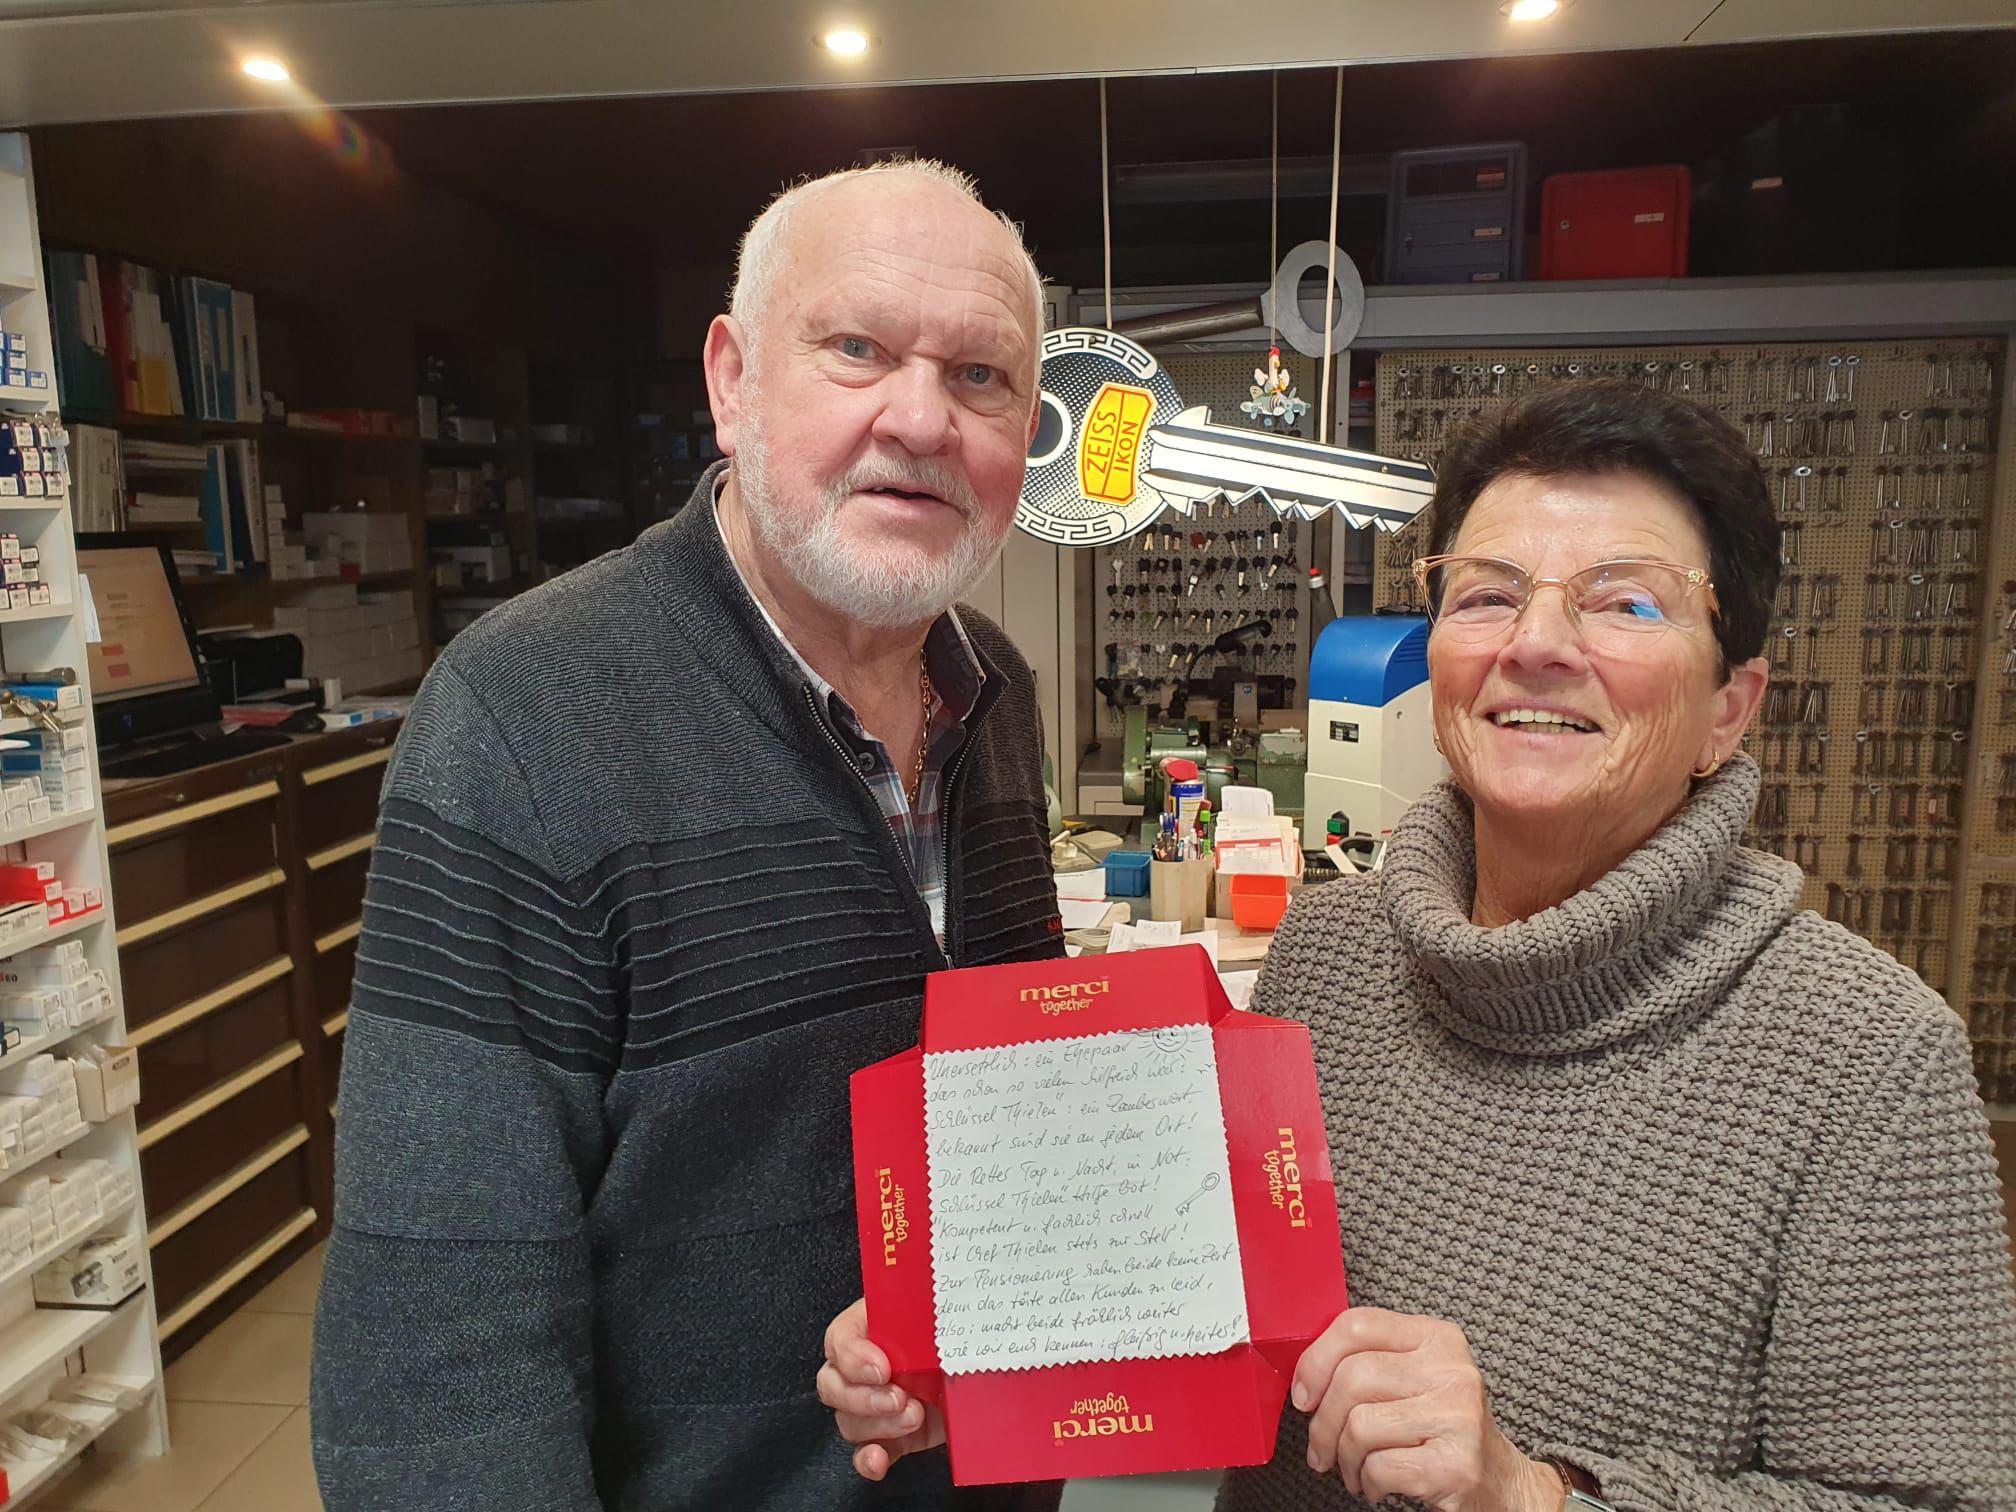 ZEISS
IKON
merci
together
Unersetzlich: ein Ehepaar
das schon so vielen hilfreich war:
"Schlüssel Thielen": ein Zauberwort
bekannt sind sie an jedem Ort!
Die Retter Tag u. Nacht, in Not:
"Schlüssel Thielen" Hilfe bot!
Kompetent u. fachlich schnell
ist Chef Thielen stets zur Stell'!
Zur Pensionierung haben beide keine Zeit
denn das täte allen Kunden zu leid,
also: macht beide fröhlich weiter
wie wir euch kennen: fleißig u. heiter!
merci
together
merci
together
merci
together